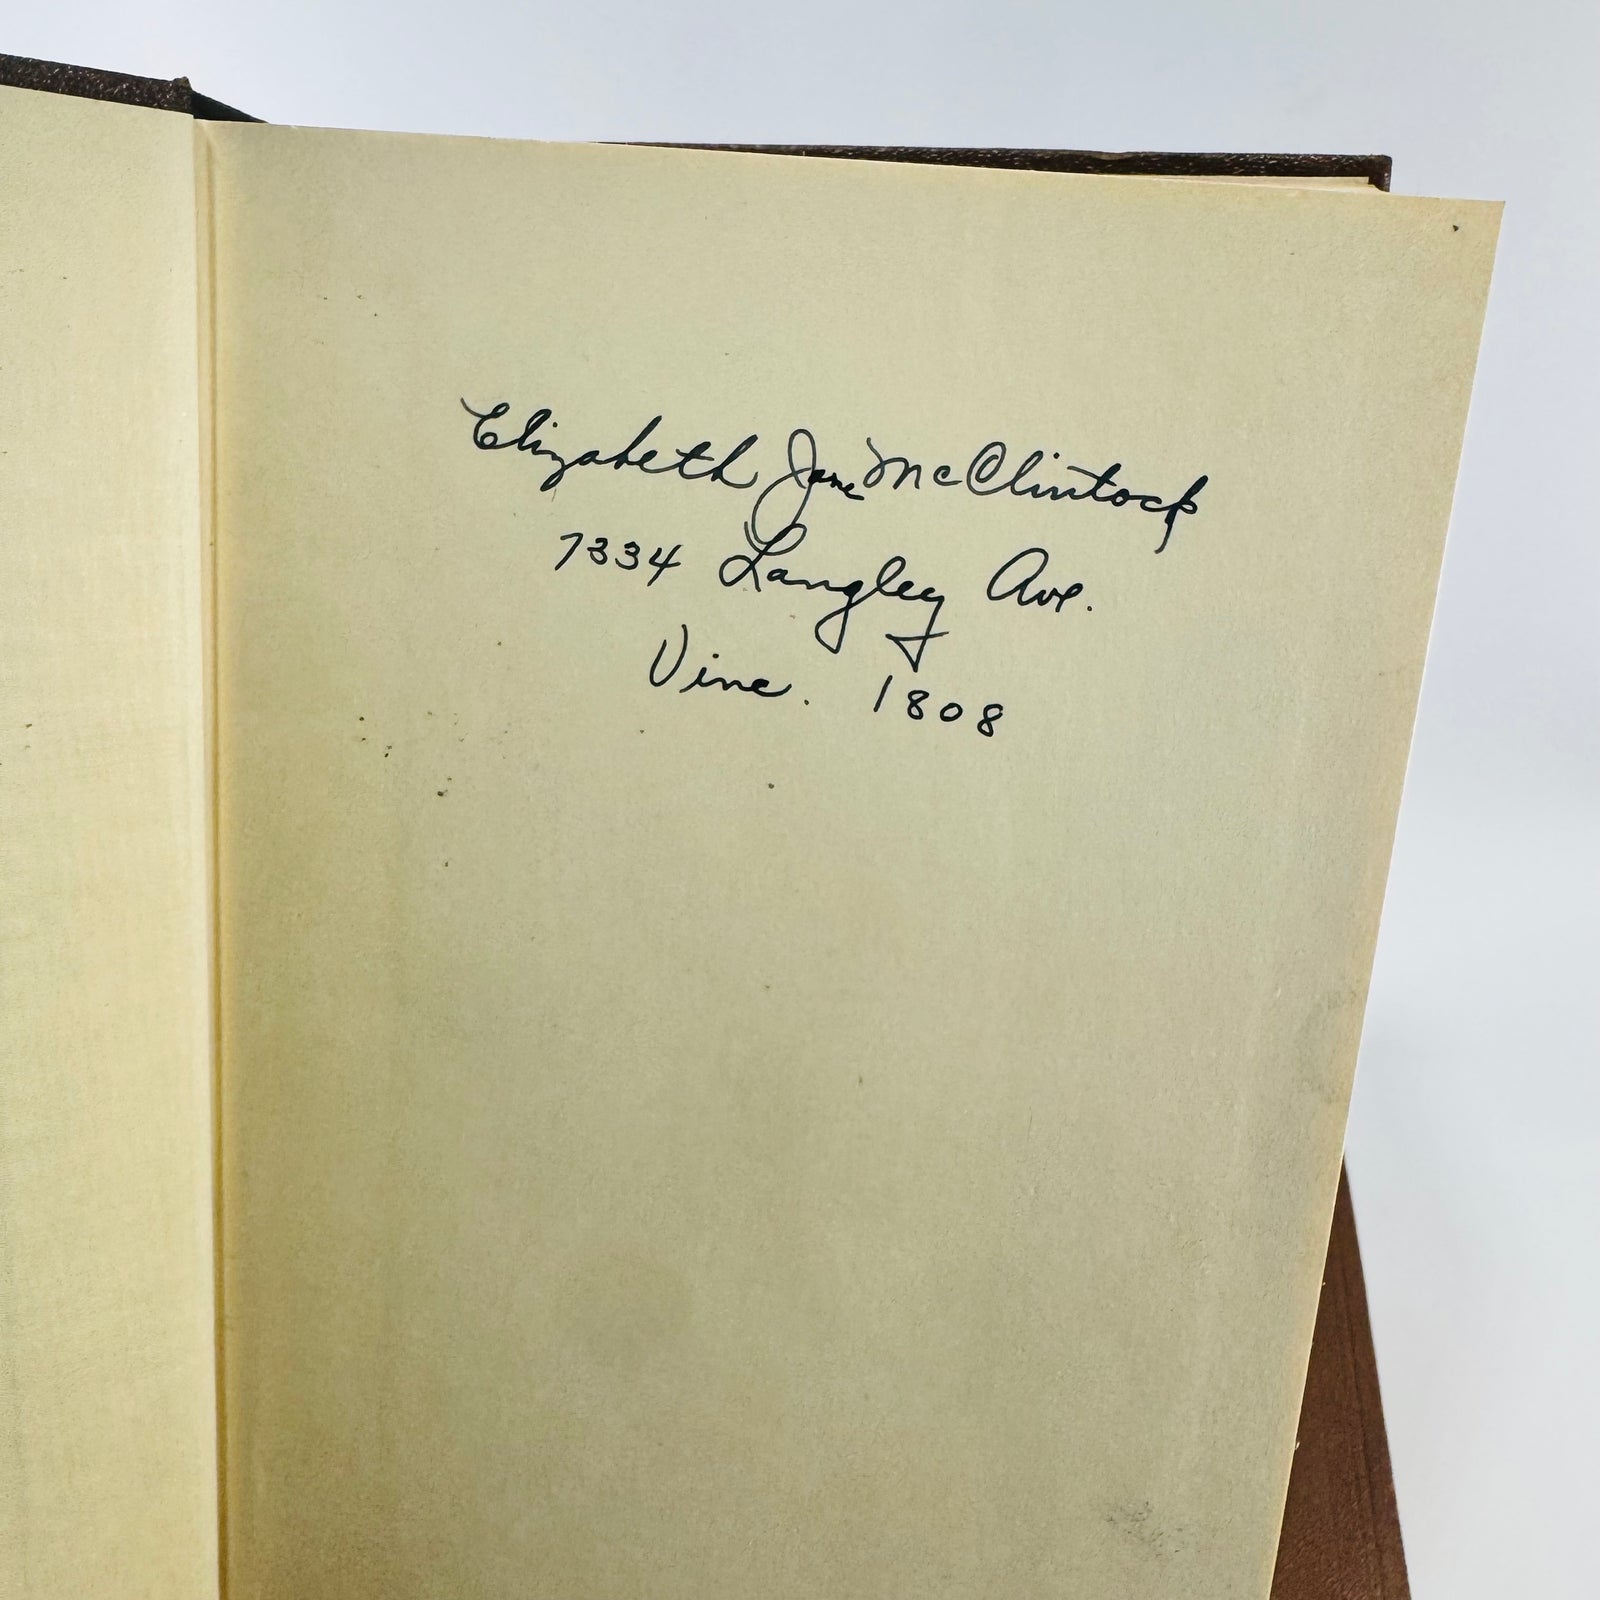 Elizabeth Jane McClintock
7334 Langley Ave.
Vinc. 1808